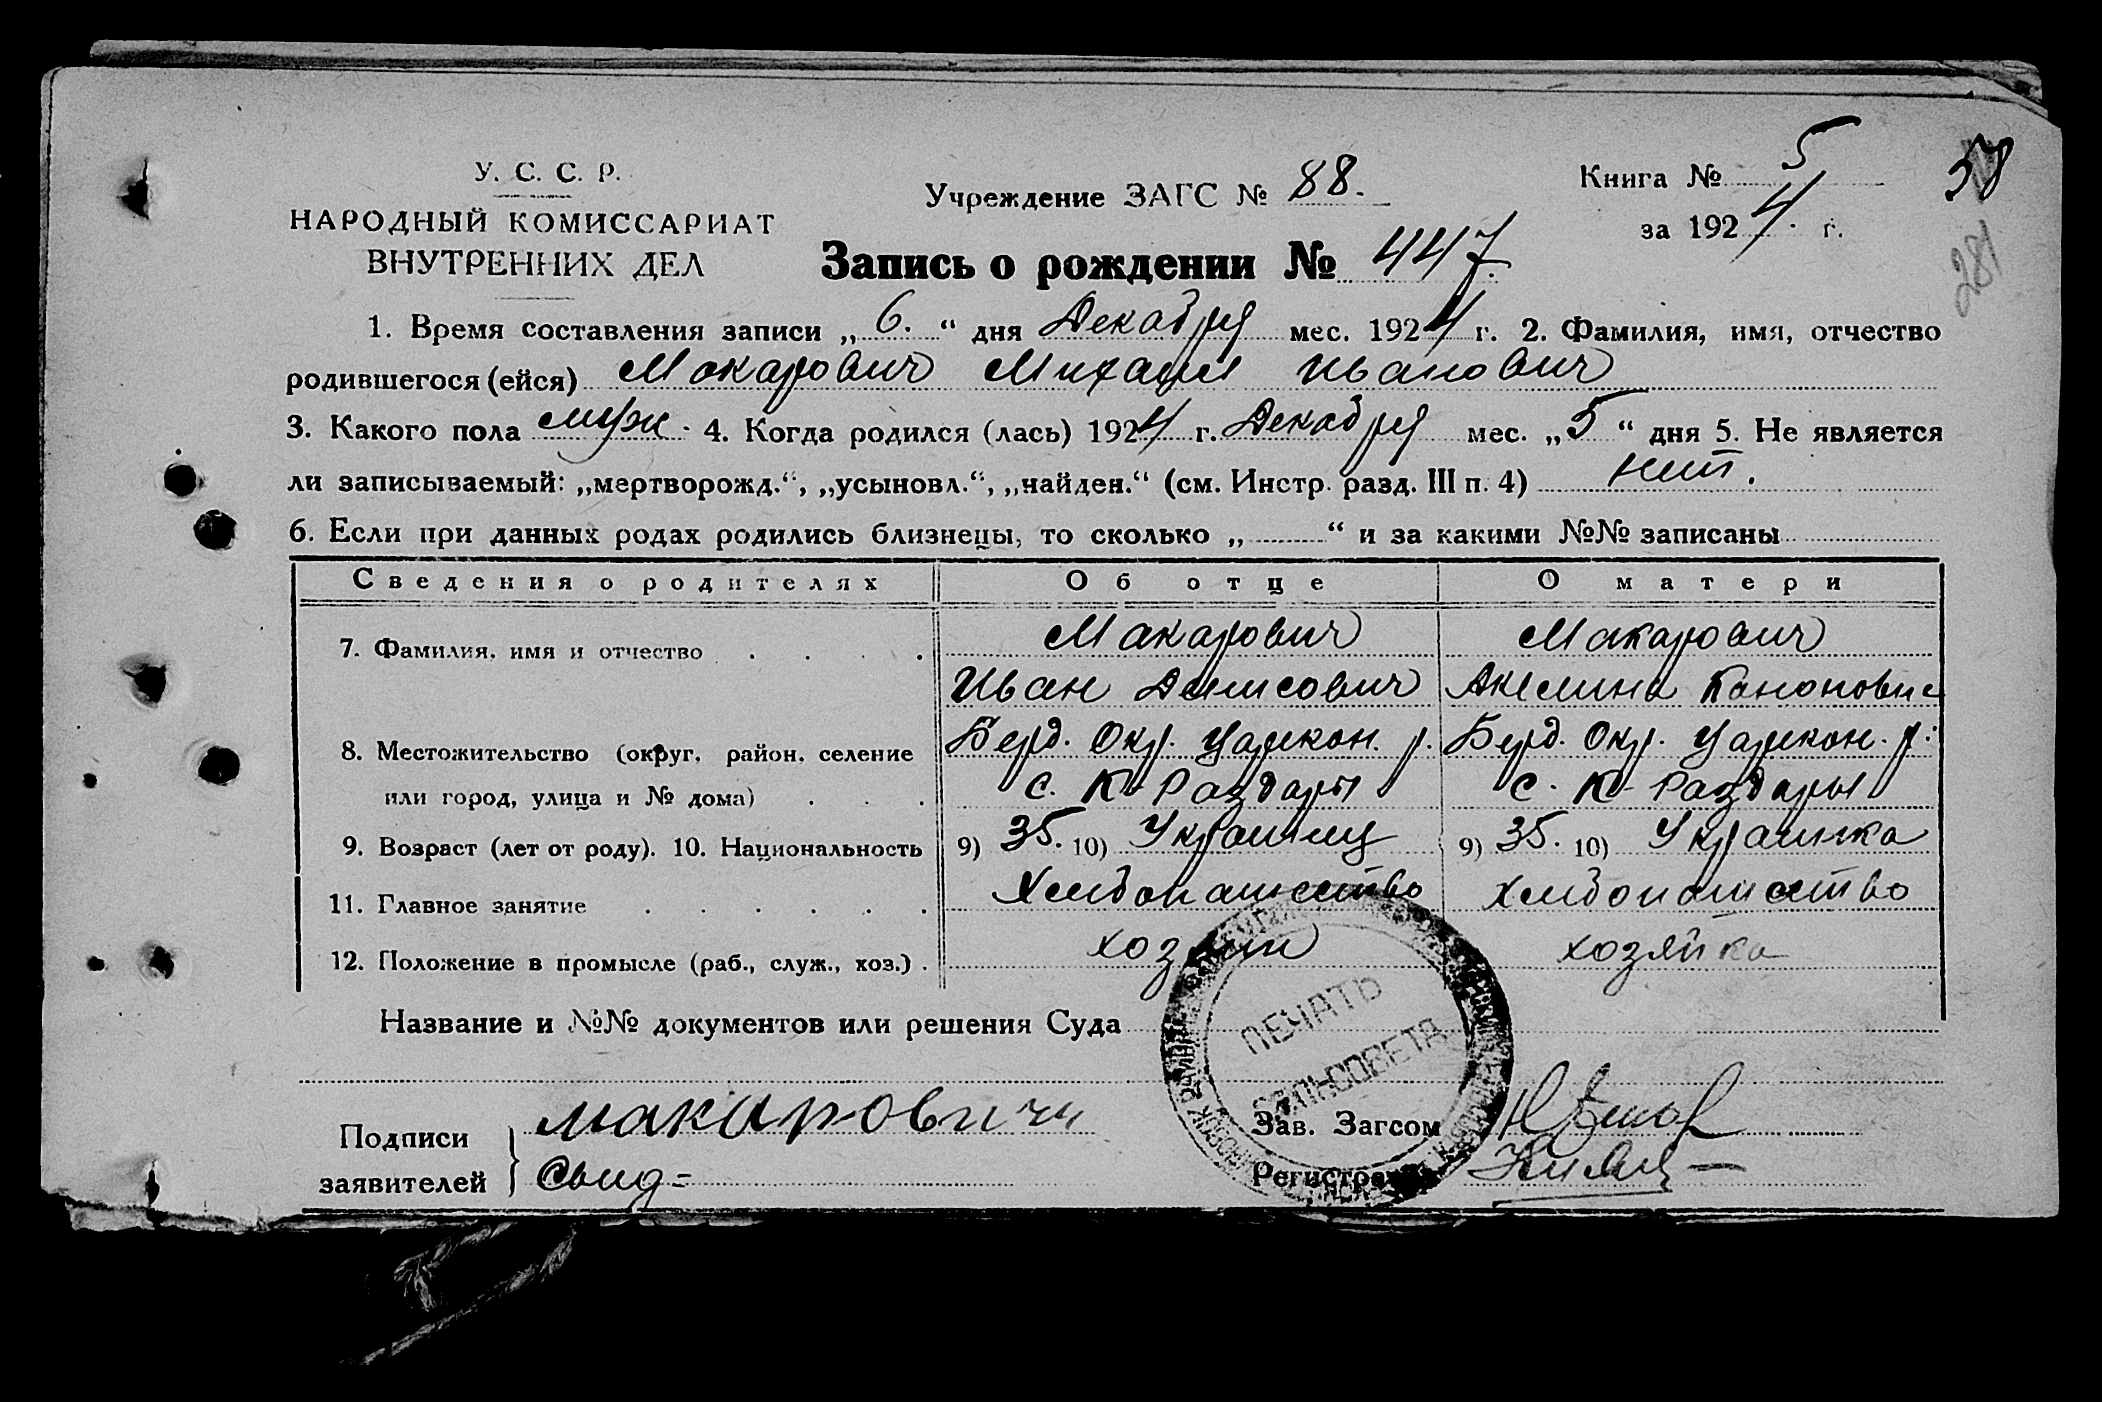 У. С. С. Р.
НАРОДНЫЙ КОМИССАРИАТ
ВНУТРЕННИХ ДЕЛ
Учреждение ЗАГС № 88.
Книга № 5
за 1924 г.
58
281
Запись о рождении № 447
1. Время составления записи „6.“ дня Декабря мес. 1924 г. 2. Фамилия, имя, отчество
родившегося (ейся) Макарович Михаил Иванович
3. Какого пола муж. 4. Когда родился (лась) 1924 г. Декабря мес. „5“ дня 5. Не является
ли записываемый: „мертворожд.“, „усыновл.“, „найден.“ (см. Инстр. разд. III п. 4) нет.
6. Если при данных родах родились близнецы, то сколько „ “ и за какими №№ записаны
Сведения о родителях Об отце О матери
7. Фамилия, имя и отчество Макарович Макарович
Иван Денисович Акелина Кононовне
8. Местожительство (округ, район, селение Берд. Окр. Царекон. р. Берд. Окр. Царекон. р.
или город, улица и № дома) с. К-Раздоры с. К-Раздоры
9. Возраст (лет от роду). 10. Национальность 9) 35. 10) Украинец 9) 35. 10) Украинка
11. Главное занятие Хлебопашество хлебопашество
12. Положение в промысле (раб., служ., хоз.) хозяин хозяйка
Название и №№ документов или решения Суда
ПЕЧАТЬ
СЕЛЬСОВЕТА
Подписи
заявителей
Макарович
Свид=
Зав. Загсом
Регистратор